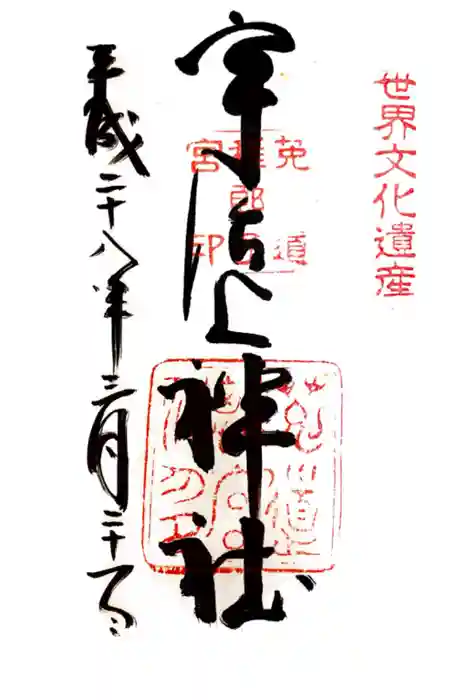 世界文化遺産
宇治上神社
菟道
稚郎子
宮印
平成二十八年三月二十